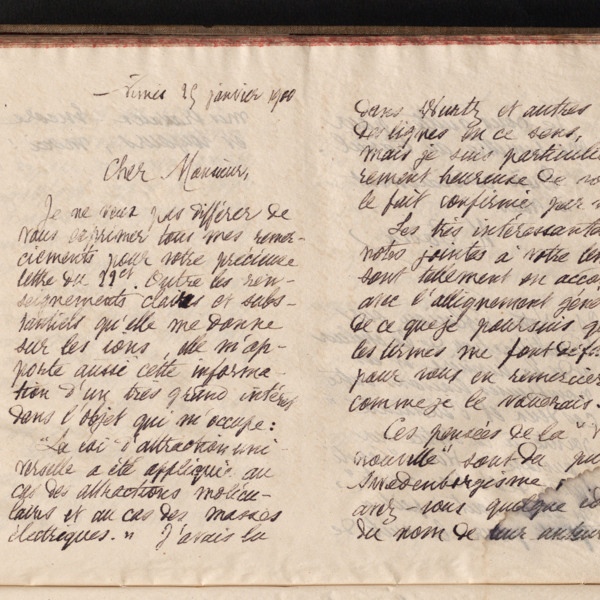 Nimes 25 janvier 1900
Cher Monsieur,
Je ne veux pas différer de
vous exprimer tous mes remer-
ciements pour votre précieuse
lettre du 19 ct. Outre les ren-
seignements clairs et subs-
tantiels qu'elle me donne
sur les ions, elle m'ap-
porte aussi cette informa-
tion d'un très grand intérêt
dans l'objet qui m'occupe:
"La loi d'attraction uni-
verselle a été appliquée au
cas des attractions molécu-
laires et au cas des masses
électriques." J'avais lu
dans Wurtz et autres
des lignes en ce sens,
mais je suis particuliè
rement heureuse de vo
le fait confirmé par v
Les très intéressantes
notes jointes à votre let
sont tellement en acco
avec l'alignement géné
de ce que je poursuis q
les termes me font défa
pour vous en remercier
comme je le voudrais.
Ces pensées de la "
nouvelle" sont du pu
Swedenborgisme;
avez-vous quelque id
du nom de leur auteur